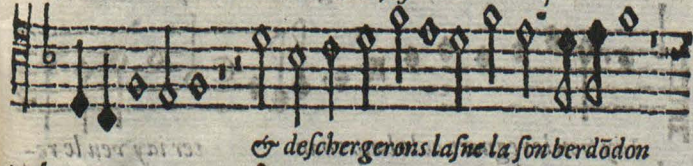 & deſchergerons laſne la ſon berdōdon